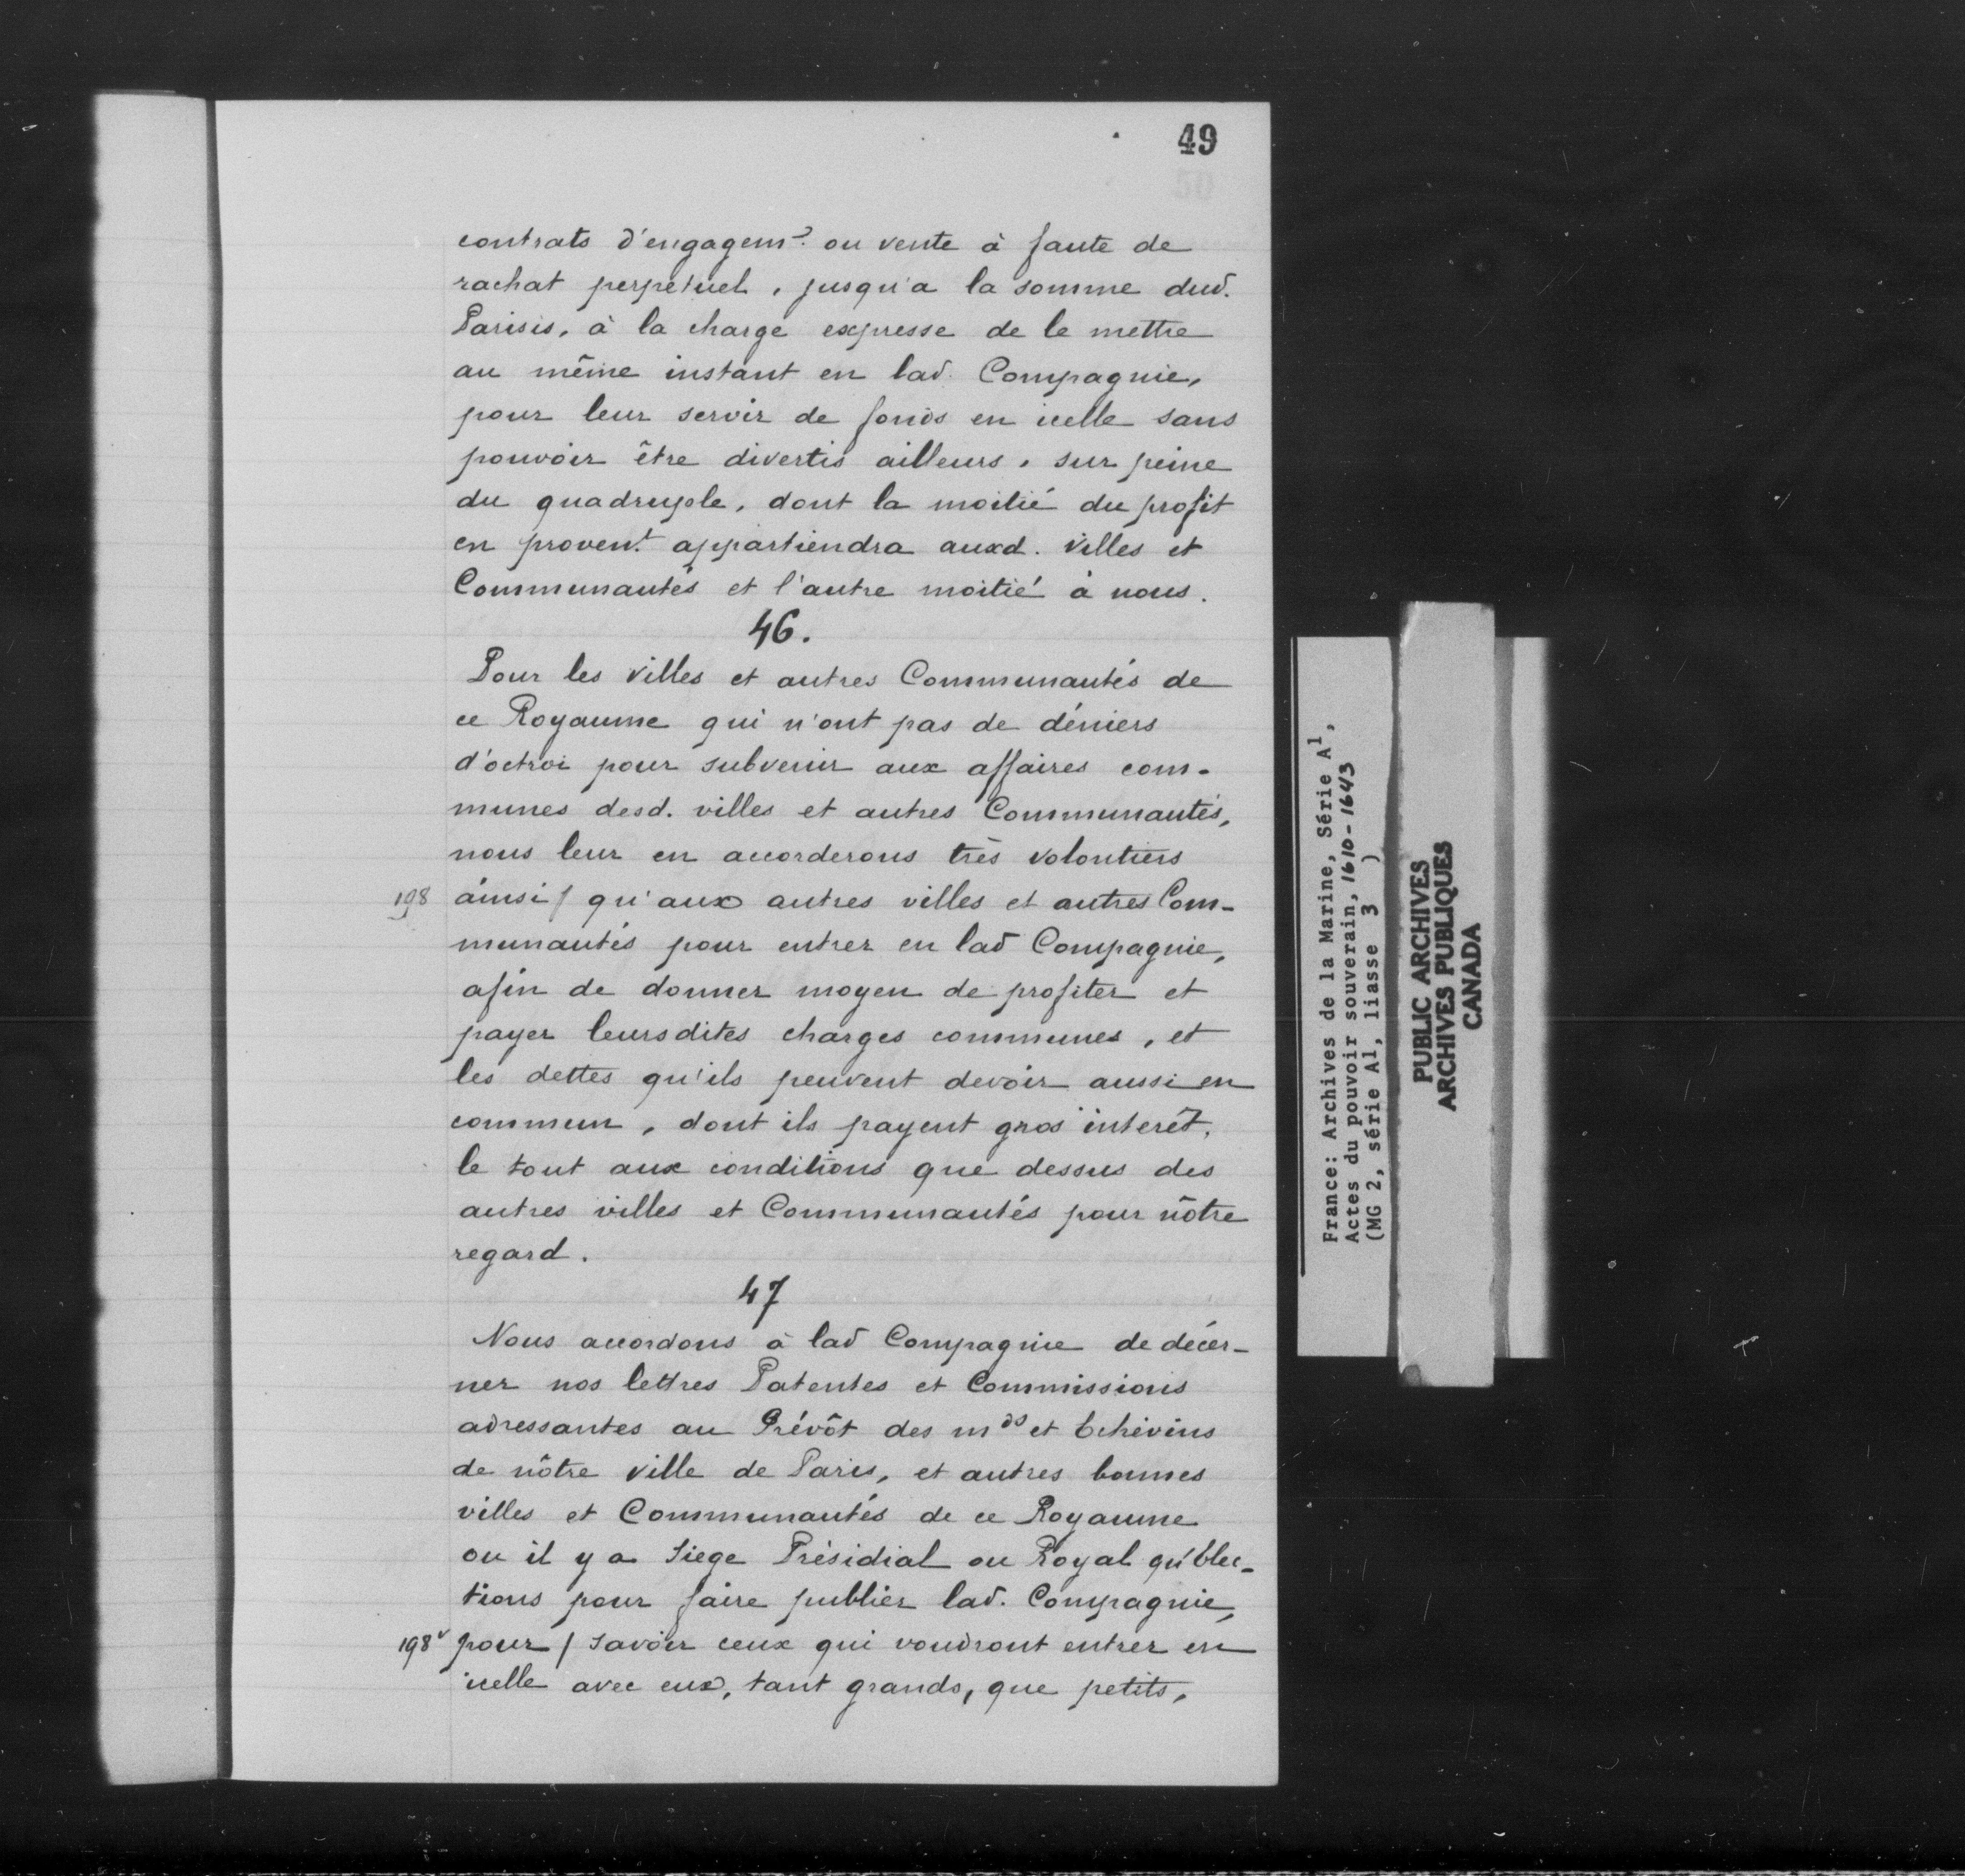 49
50
contrats d'engagemt. ou vente à faute de
rachat perpetuel, jusqu'a la somme dud.
Parisis, à la charge expresse de le mettre
au même instant en lad. Compagnie,
pour leur servir de fonds en icelle sans
pouvoir être divertis ailleurs, sur peine
du quadruple, dont la moitié du profit
en provent. appartiendra auxd. Villes et
Communautés et l'autre moitié à nous.
46.
Pour les Villes et autres Communautés de
ce Royaume qui n'ont pas de déniers
d'octroi pour subvenir aux affaires com-
munes desd. villes et autres Communautés,
nous leur en accorderons très volontiers
198 ainsi / qu'aux autres villes et autres Com-
munautés pour entrer en lad Compagnie,
afin de donner moyen de profiter et
payer leursdites charges communes, et
les dettes qu'ils peuvent devoir aussi en
commun, dont ils payent gros interêt,
le tout aux conditions que dessus des
autres villes et Communautés pour nôtre
regard.
47
Nous accordons à lad Compagnie de décer-
ner nos lettres Patentes et Commissions
adressantes au Prévôt des mds et Echevins
de nôtre Ville de Paris, et autres bonnes
villes et Communautés de ce Royaume
ou il y a Siege Présidial ou Royal qu'Elec-
tions pour faire publier lad. Compagnie,
198v pour / savoir ceux qui voudront entrer en
icelle avec eux, tant grands, que petits,
France: Archives de la Marine, Série A1,
Actes du pouvoir souverain, 1610-1643
(MG 2, série A1, liasse 3 )
PUBLIC ARCHIVES
ARCHIVES PUBLIQUES
CANADA